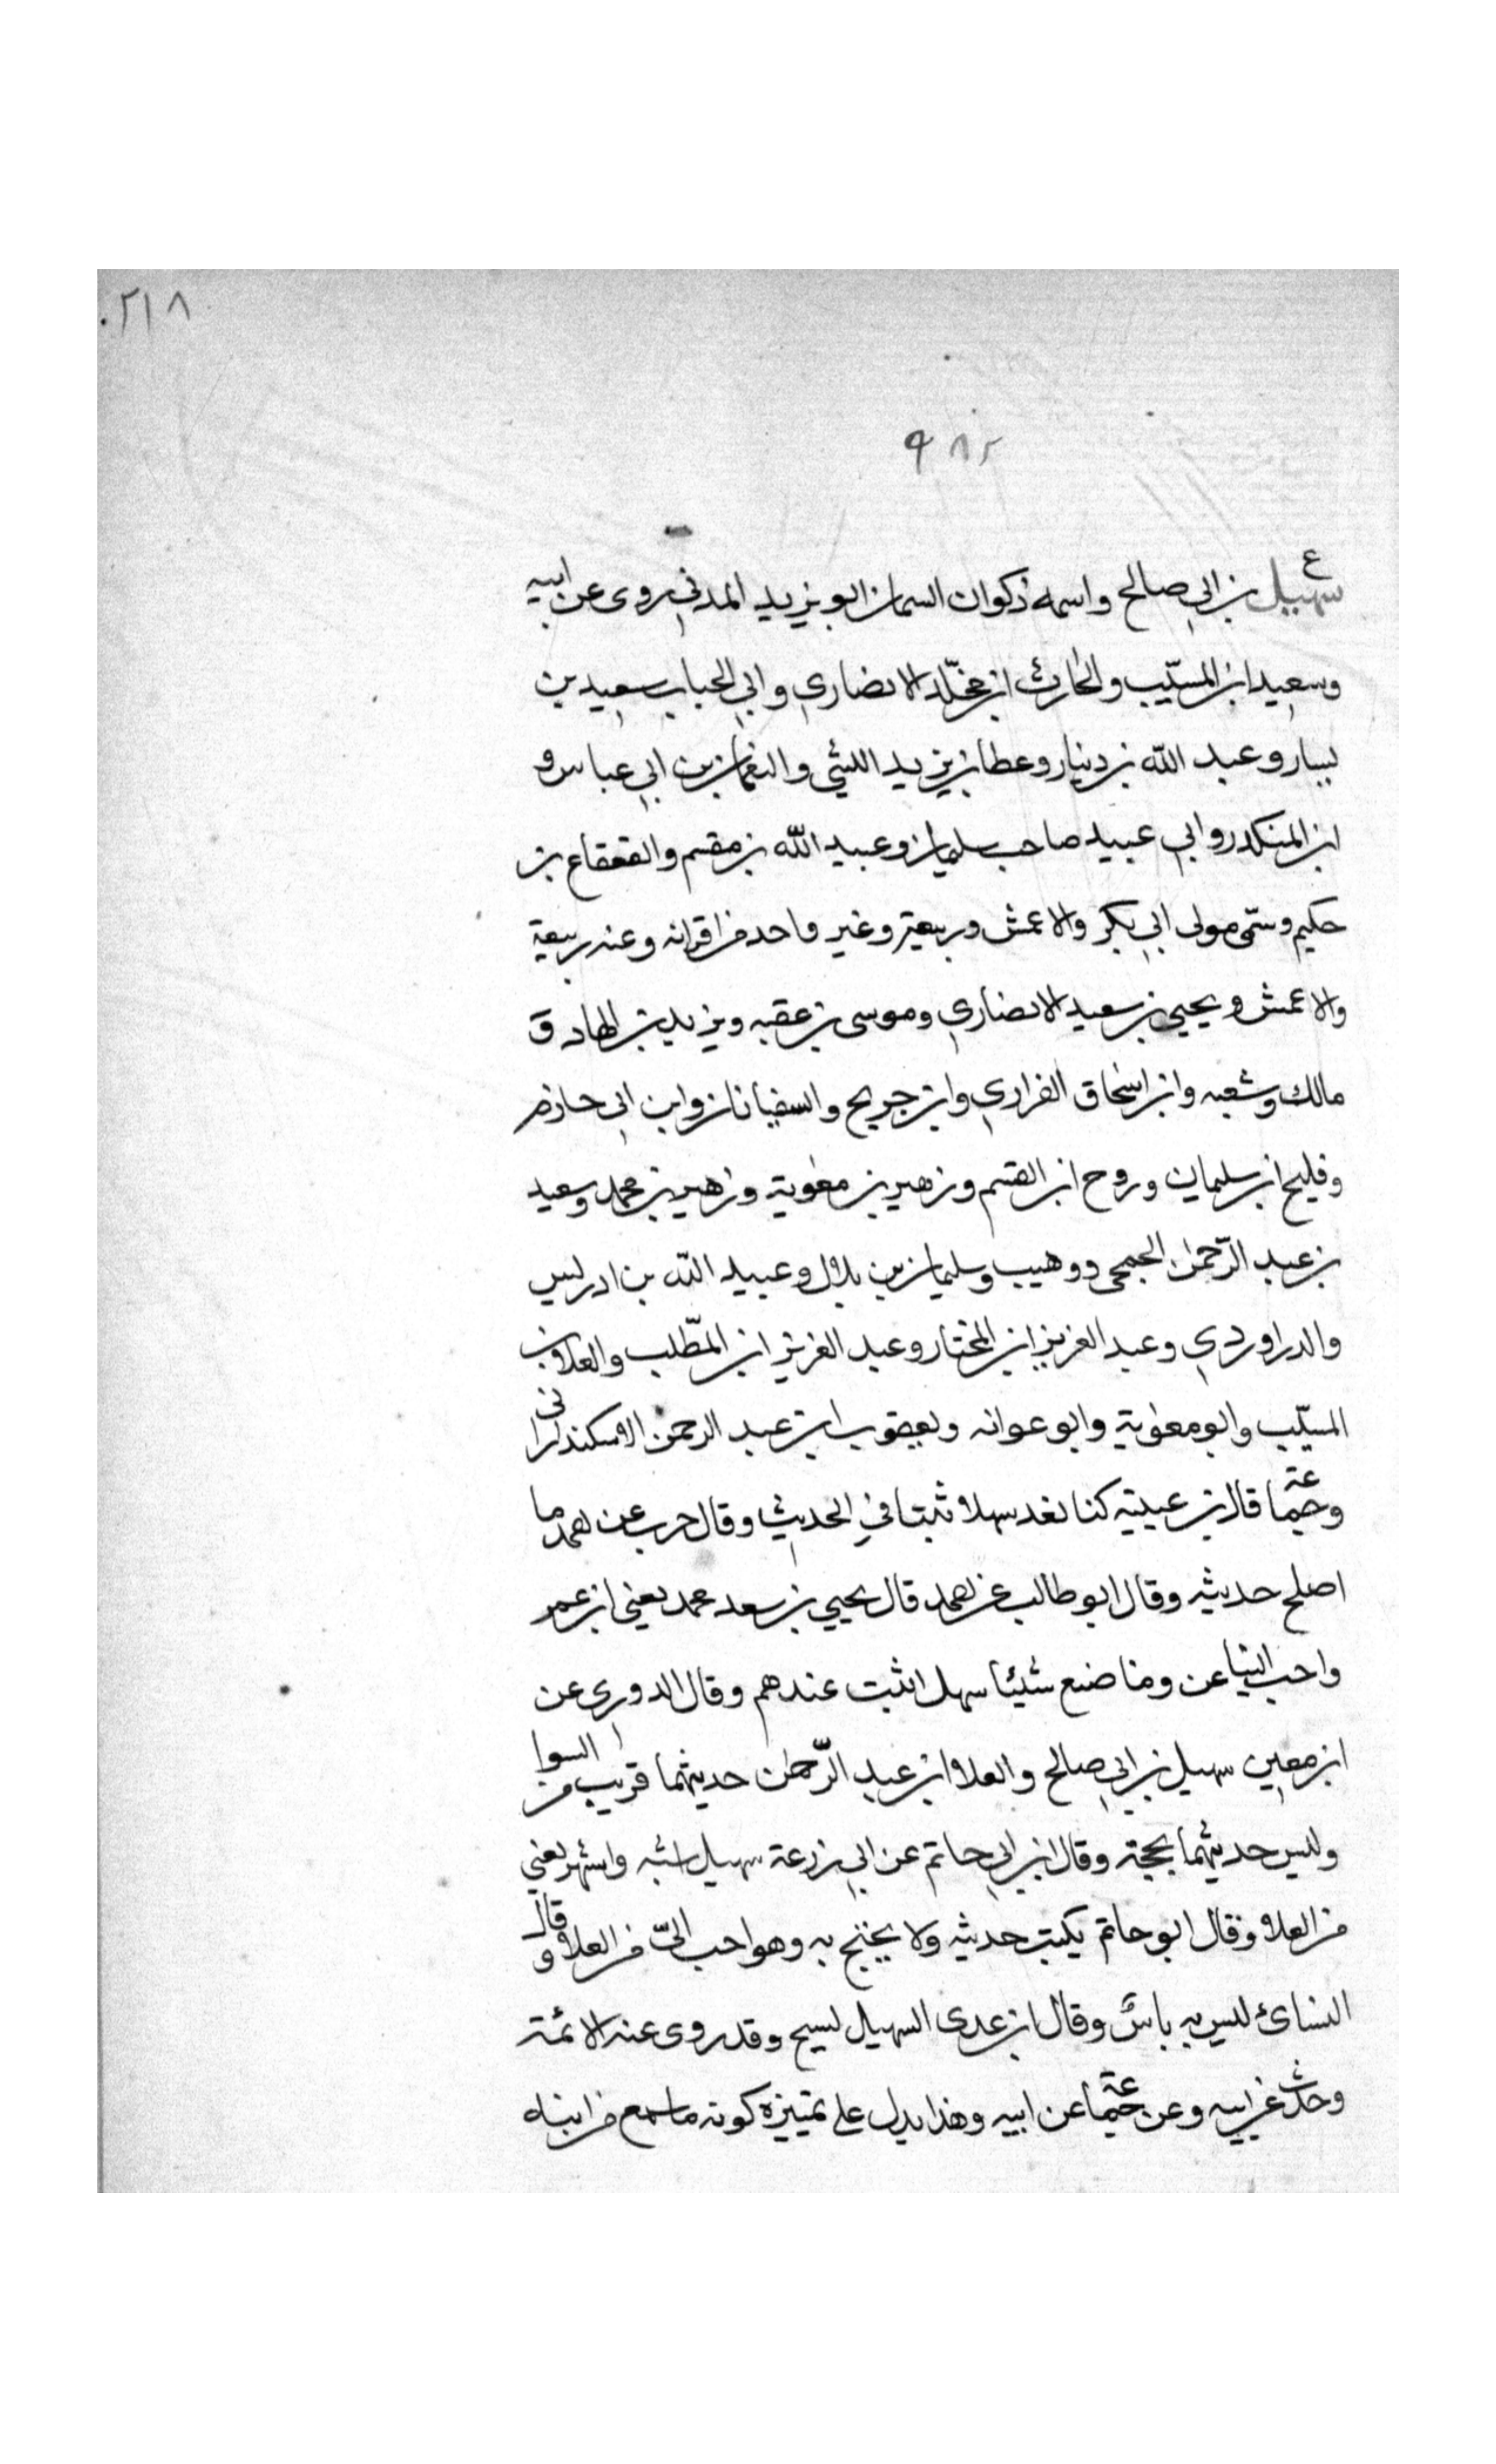 ٢١٨
٩٨٢
ع
سهيل بن ابي صالح واسمه ذكوان السمان ابو يزيد المدني روى عن ابيه
وسعيد ابن المسيّب والحارث ابن مخلّد الانصاري وابي الحباب سعيد بن
يسار وعبد الله بن دينار وعطا بن يزيد الليثي والنعمان بن ابي عياش و
ابن المنكدر وابي عبيد صاحب سليمان وعبيد الله بن مقسم والقعقاع بن
حكيم وسمّى مولى ابي بكر والاعمش وربيعة وغير واحد من اقرانه وعنه ربيعة
والاعمش ويحيى بن سعيد الانصاري وموسى بن عقبه ويزيد بن الهاد و
مالك وشعبه وابن اسحاق الفزاري وابن جريح والسفيانان وابن ابي حازم
وفليح ابن سليمان وروح ابن القسم وزهير بن معوية وزهير بن محمد وسعيد
بن عبد الرّحمن الجمحي ووهيب وسليمان بن بلال وعبيد الله بن ادريس
والدراوردي وعبد العزيز ابن المختار وعبد العزيز ابن المطّلب والعلا بن
المسيّب وابو معوية وابو عوانه ويعقوب ابن عبد الرحمن الاسكندراني
وجماعة قال بن عيينه كنا نعد سهلا ثبتا في الحديث وقال حرب عن احمد ما
اصلح حديثه وقال ابو طالب عن احمد قال يحيى بن سعد محمد يعني ابن عمر
واحب الينا عن وما صنع شيئا سهل اثبت عندهم وقال الدوري عن
ابن معين سهيل بن ابي صالح والعلا ابن عبد الرّحمن حديثهما قريب من السوا
وليس حديثهما بحجة وقال ابن ابي حاتم عن ابي زرعة سهيل اشبه واشهر يعني
من العلا وقال ابو حاتم يكتب حديثه ولا يحتج به وهو احب اليّ من العلا وقال
النسائ ليس به باس وقال ابن عدى السهيل نسيح وقد روى عنه الائمة
وحدث عن ابيه وعن جماعة عن ابيه وهذا يدل على تمييزه كونه ما سمع من ابيه